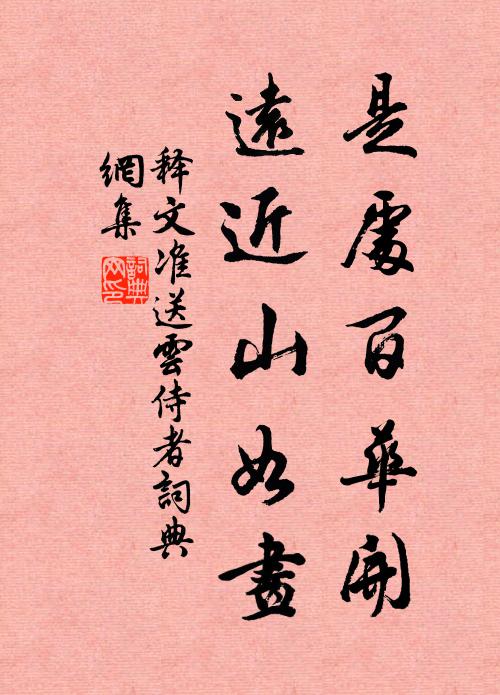 是處百華開
遠近山如畫
释文准送雲侍者詞典
網集
詞典網印